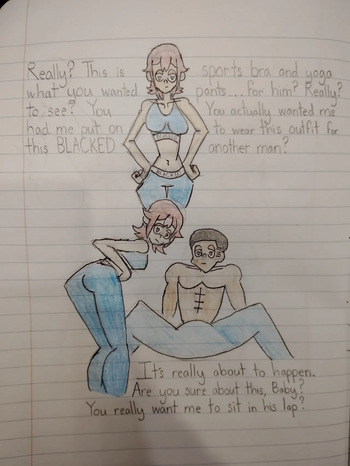 Really? This is sports bra and yoga
what you wanted pants...for him? Really?
to see? You You actually wanted me
had me put on to wear this outfit for
this BLACKED another man?
It's really about to happen.
Are you sure about this, Baby?
You really want me to sit in his lap?